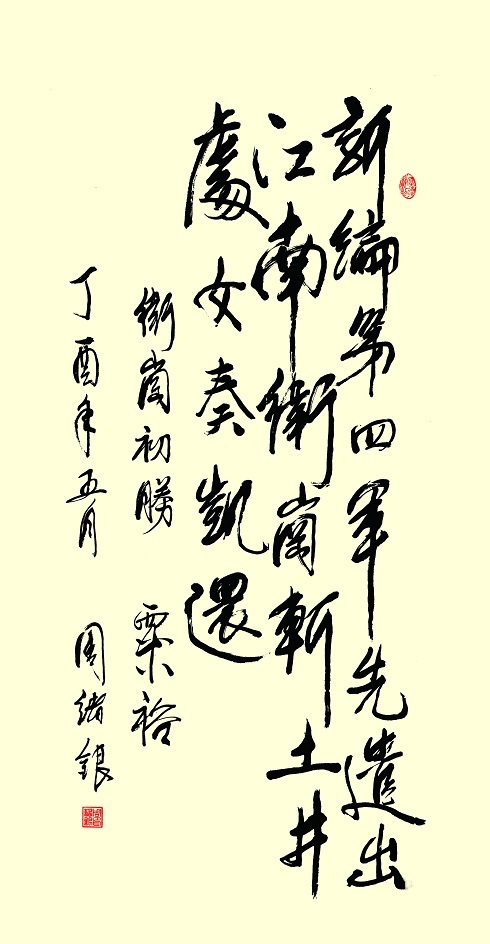 新编第四军先遣出
江南衛崗斬土井
處女奏凱還
衛崗初勝 粟裕
丁酉年五月 周绪銀